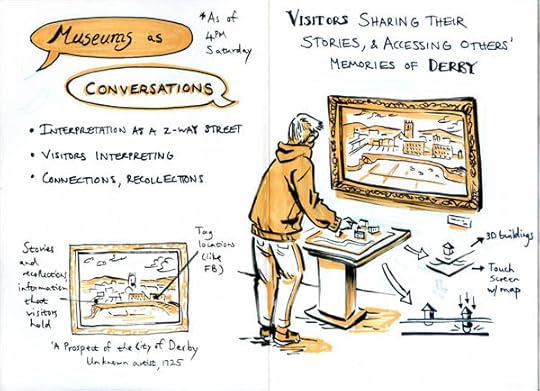 Museums as
CONVERSATIONS
*As of
4PM
Saturday
• INTERPRETATION AS A 2-WAY STREET
• VISITORS INTERPRETING
• CONNECTIONS, RECOLLECTIONS
Stories
and
recollections,
information
that
visitors
hold
Tag
locations
(like
FB)
'A Prospect of the City of Derby
Unknown artist, 1725
VISITORS SHARING THEIR
STORIES, & ACCESSING OTHERS'
MEMORIES OF DERBY
3D buildings
Touch
screen
w/map